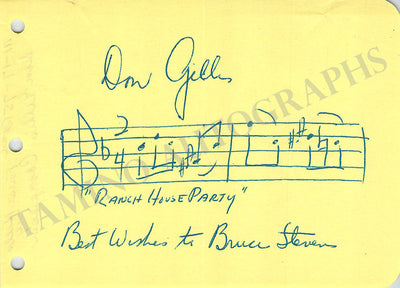 Don Gillis
2
4
"RANCH HOUSE PARTY"
Best Wishes to Bruce Stevens
TAMINO AUTOGRAPHS